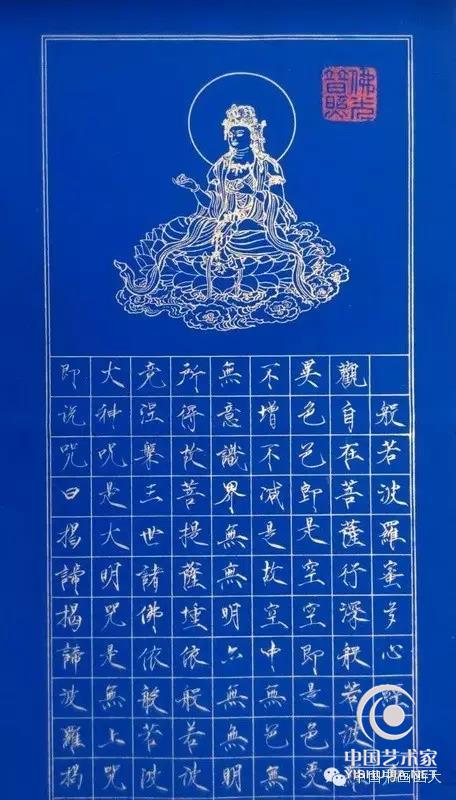 佛光普照
般若波羅蜜多心
觀自在菩薩行深般若波
異色色即是空空即是色受
不增不減是故空中無色無
無意識界無無明亦無無明
所得故菩提薩埵依般若波
竟涅槃三世諸佛依般若波
大神呪是大明咒是無上咒
即說咒曰揭諦揭諦波羅揭
中国艺术家
YISHUJIA.NET